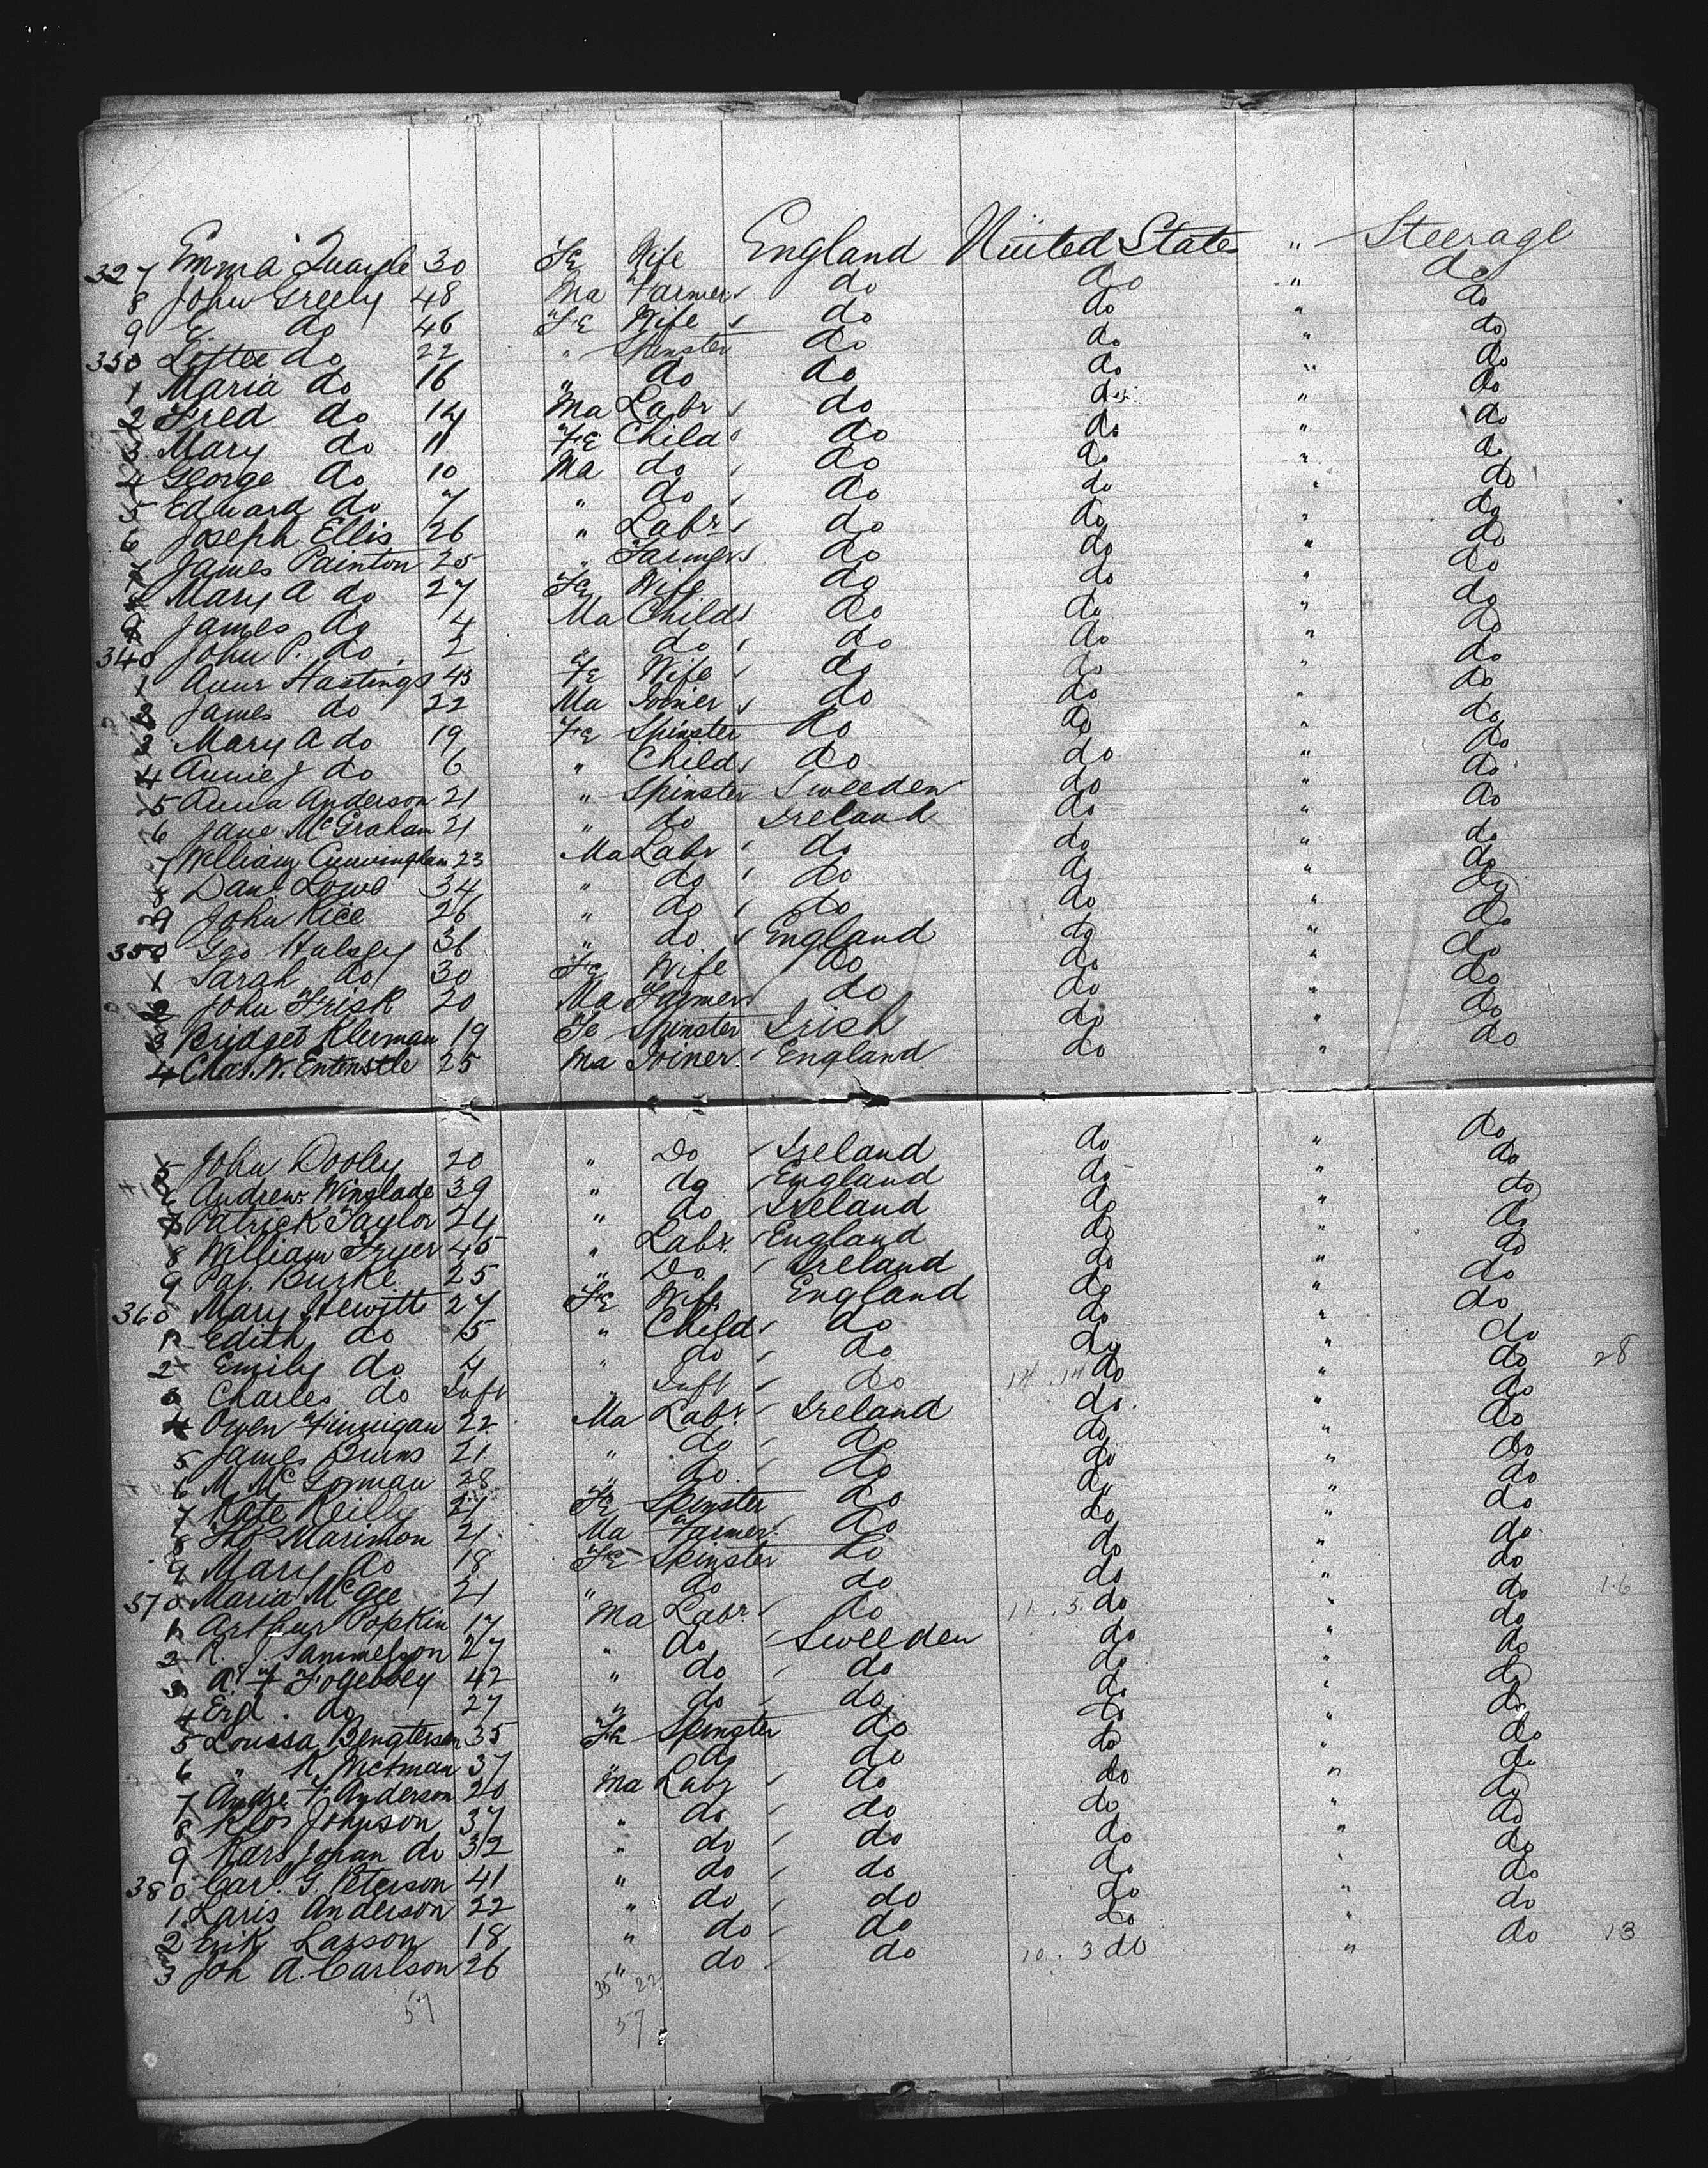 327 Emma Quayle 30 Fe Wife England United States " Steerage
8 John Greely 48 Ma Farmer do do " do
9 E. do 46 Fe Wife do do " do
330 Lottee do 22 " Spinster do do " do
1 Maria do 16 " do do do " do
2 Fred do 14 Ma Labr do do " do
3 Mary do 11 Fe Child do do " do
4 George do 10 Ma do do do " do
5 Edward do 7 " do do do " do
6 Joseph Ellis 26 " Labr do do " do
7 James Painton 25 " Farmer do do " do
8 Mary A do 27 Fe Wife do do " do
9 James do 4 Ma Child do do " do
340 John P. do 2 " do do do " do
1 Hastings 43 Fe Wife do do " do
2 James do 22 Ma Joiner do do " do
3 Mary A do 19 Fe Spinster do do " do
4 Annie J do 6 " Child do do " do
5 Anna Anderson 21 " Spinster Sweeden do " do
6 Jane McGraham 21 " do Ireland do " do
7 William Cunningham 23 Ma Labr do do " do
8 Danl Lowe 34 " do do do " do
9 John Rice 26 " do do do " do
350 Geo Hulsey 36 " do England do " do
1 Sarah do 30 Fe Wife do do " do
2 John Frisk 20 Ma Farmer do do " do
3 Bridget Klerman 19 Fe Spinster Irish do " do
4 Chas. W. Entenstle 25 Ma Joiner England do " do
5 John Dooley 20 " Do Ireland do " do
6 Andrew Winslade 39 " do England do " do
7 Patrick Taylor 24 " do Ireland do " do
8 William Fryer 45 " Labr. England do " do
9 Pat. Burke 25 " Do Ireland do " do
360 Mary Hewitt 27 Fe Wife England do " do
1 Edith do 5 " Child do do " do
2 Emily do 4 " do do do " do 28
3 Charles do Inft Inft do 14 . 14 do " do
4 Owen Finnugan 22 Ma Labr Ireland do. " do
5 James Burns 21 " do do do " do
6 M. McGorman 28 " do do do " do
7 Kate Reilly 21 Fe Spinster do do " do
8 Thos Marimon 21 Ma Farmer do do " do
9 Mary do 18 Fe Spinster do do " do
370 Maria McGee 21 " do do do " do 16
1 Arthur Popkin 17 Ma Labr do 11 . 3. do " do
2 R. J. Sammelson 27 " do Sweeden do " do
3 A. F 42 " do do do " do
4 do 27 " do do do " do
5 Loussa Bengtersen 35 Fe Spinster do do " do
6 " K. Wictman 37 " do do do " do
7 Andre F Anderson 20 Ma Labr do do " do
8 Klos Johnson 37 " do do do " do
9 Kars Johan do 32 " do do do " do
380 Carl. G. Peterson 41 " do do do " do
1 Laris Anderson 22 " do do do " do
2 Erik Larson 18 " do do do " do 13
3 Joh A. Carlson 26 " do do 10 . 3 do "
57 35 22
57